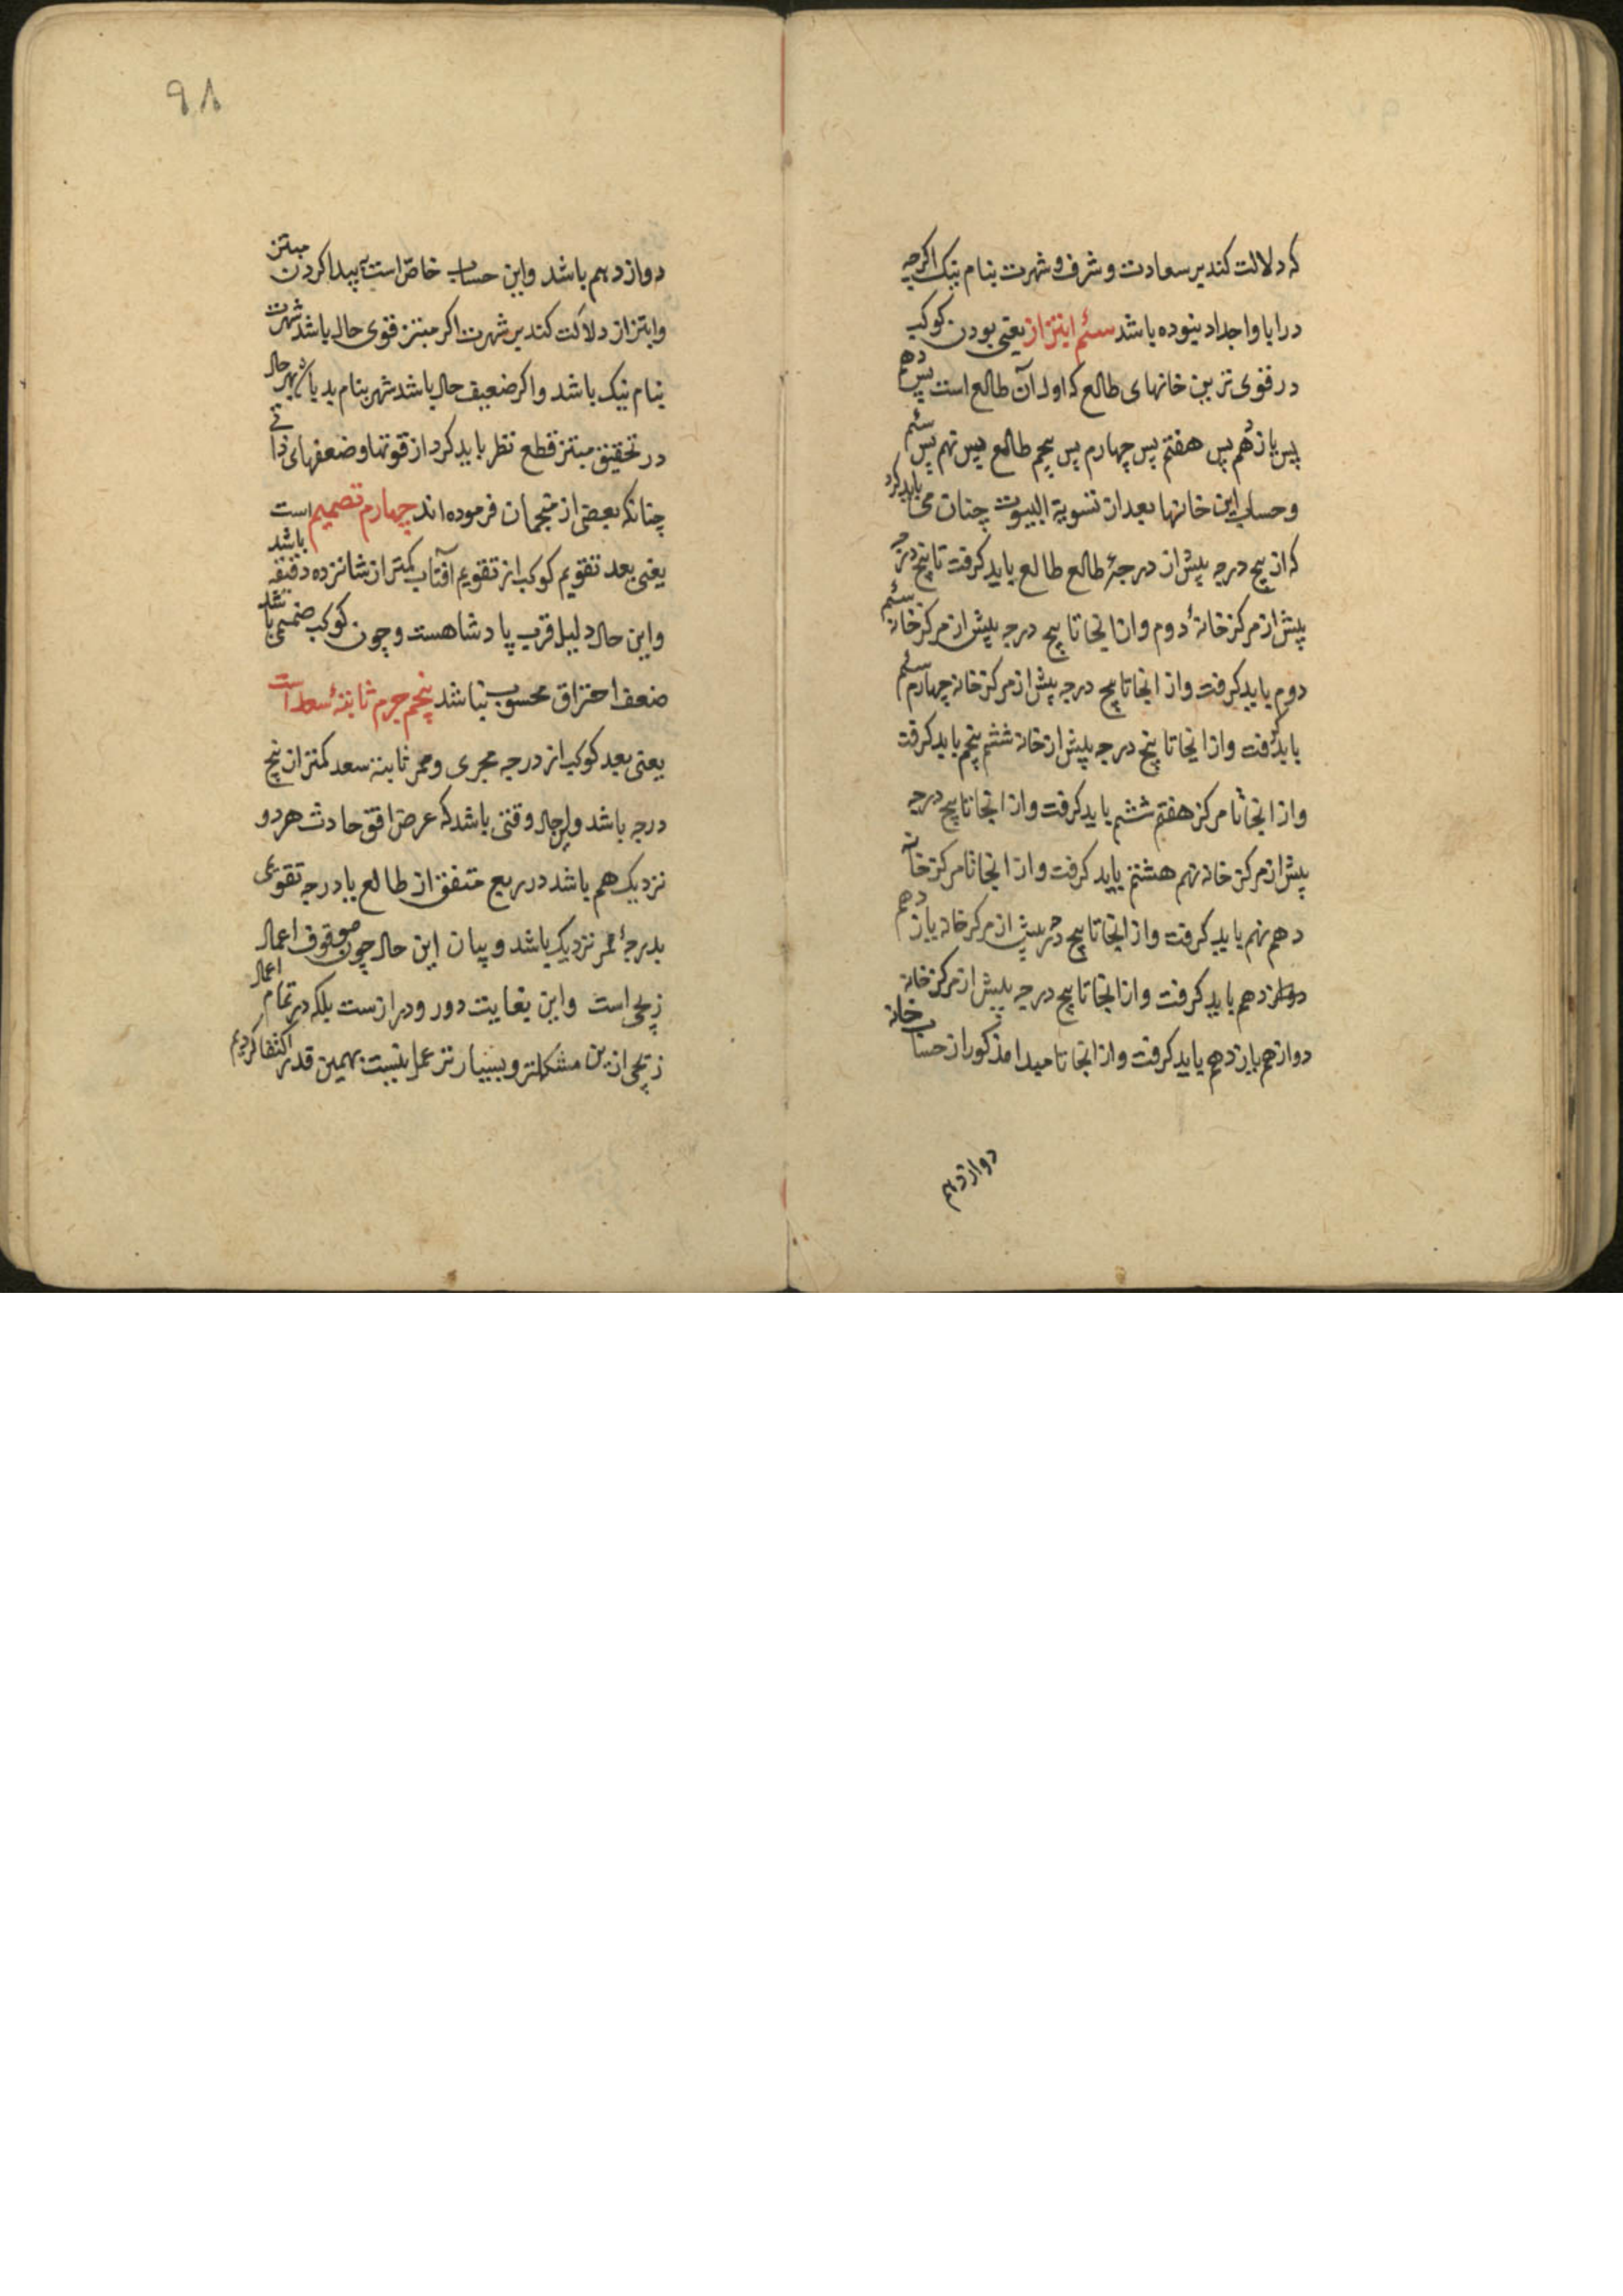 که دلالت کند بر سعادت و شرف و شهرت بنام نیک اگرچه
در ابا و اجداد نبوده باشد سئم ابتزاز یعنی بودن کوکب
در قوی ترین خانهای طالع که اول آن طالع است پس دهم
پس یازدهم پس هفتم پس چهارم پس پنجم طالع پس نهم پس سئم
و حساب این خانها بعد از تسویة البیوت چنان می باید کرد
که از پنج درجه پیش از درجۀ طالع طالع باید کرفت تا پنج درجه
پیش از مرکز خانۀ دوم و از انجا تا پنج درجه پیش از مرکز خانه سئم
دوم باید کرفت و از انجا تا پنج درجه پیش از مرکز خانه چهارم سئم
باید کرفت و از انجا تا پنج درجه پیش از خانه ششم پنجم باید کرفت
و از انجا تا مرکز هفتم ششم باید کرفت و از انجا تا پنج درجه
پیش از مرکز خانه نهم هشتم باید کرفت و از انجا تا مرکز خانه
دهم نهم باید کرفت و از انجا تا پنج درجه پیش از مرکز خانه یازدهم
دهم باید کرفت و از انجا تا پنج درجه پیش از مرکز خانه
دوازدهم یازدهم باید کرفت و از انجا تا مبدا مذکور از حساب خانه
دوازدهم
۹۸
دوازدهم باشد و این حساب خاص است به پیدا کردن مبتز
و ابتزاز دلالت کند بر شهرت اکر مبتز قوی حال باشد شهرت
بنام نیک باشد و اکر ضعیف حال باشد شهرت بنام بد بهر حال
در تحقیق مبتز قطع نظر باید کرد از قوتها و ضعفهای ذاتی
چنانکه بعضی از منجمان فرموده اند چهارم تصمیم است
یعنی بعد تقویم کوکب از تقویم آفتاب کمتر از شانزده دقیقه باشد
و این حال دلیل قرب پادشاهست و چون کوکب صمیمی باشد
ضعف احتراق محسوب نباشد پنجم جرم ثابتۀ سعد است
یعنی بعد کوکب از درجه مجری و ممر ثابته سعد کمتر از پنج
درجه باشد و این حال وقتی باشد که عرض افق حادث هر دو
نزدیک هم باشد در ربع متفق از طالع یا درجه تقویمی
بدرجۀ ممر نزدیک باشد و بیان این حال چون موقوف اعمال
زیجی است و این بغایت دور و درازست بلکه در تمام اعمال
زیجی ازین مشکلتر و بسیارتر عمل نیست بهمین قدر اکتفا کردیم